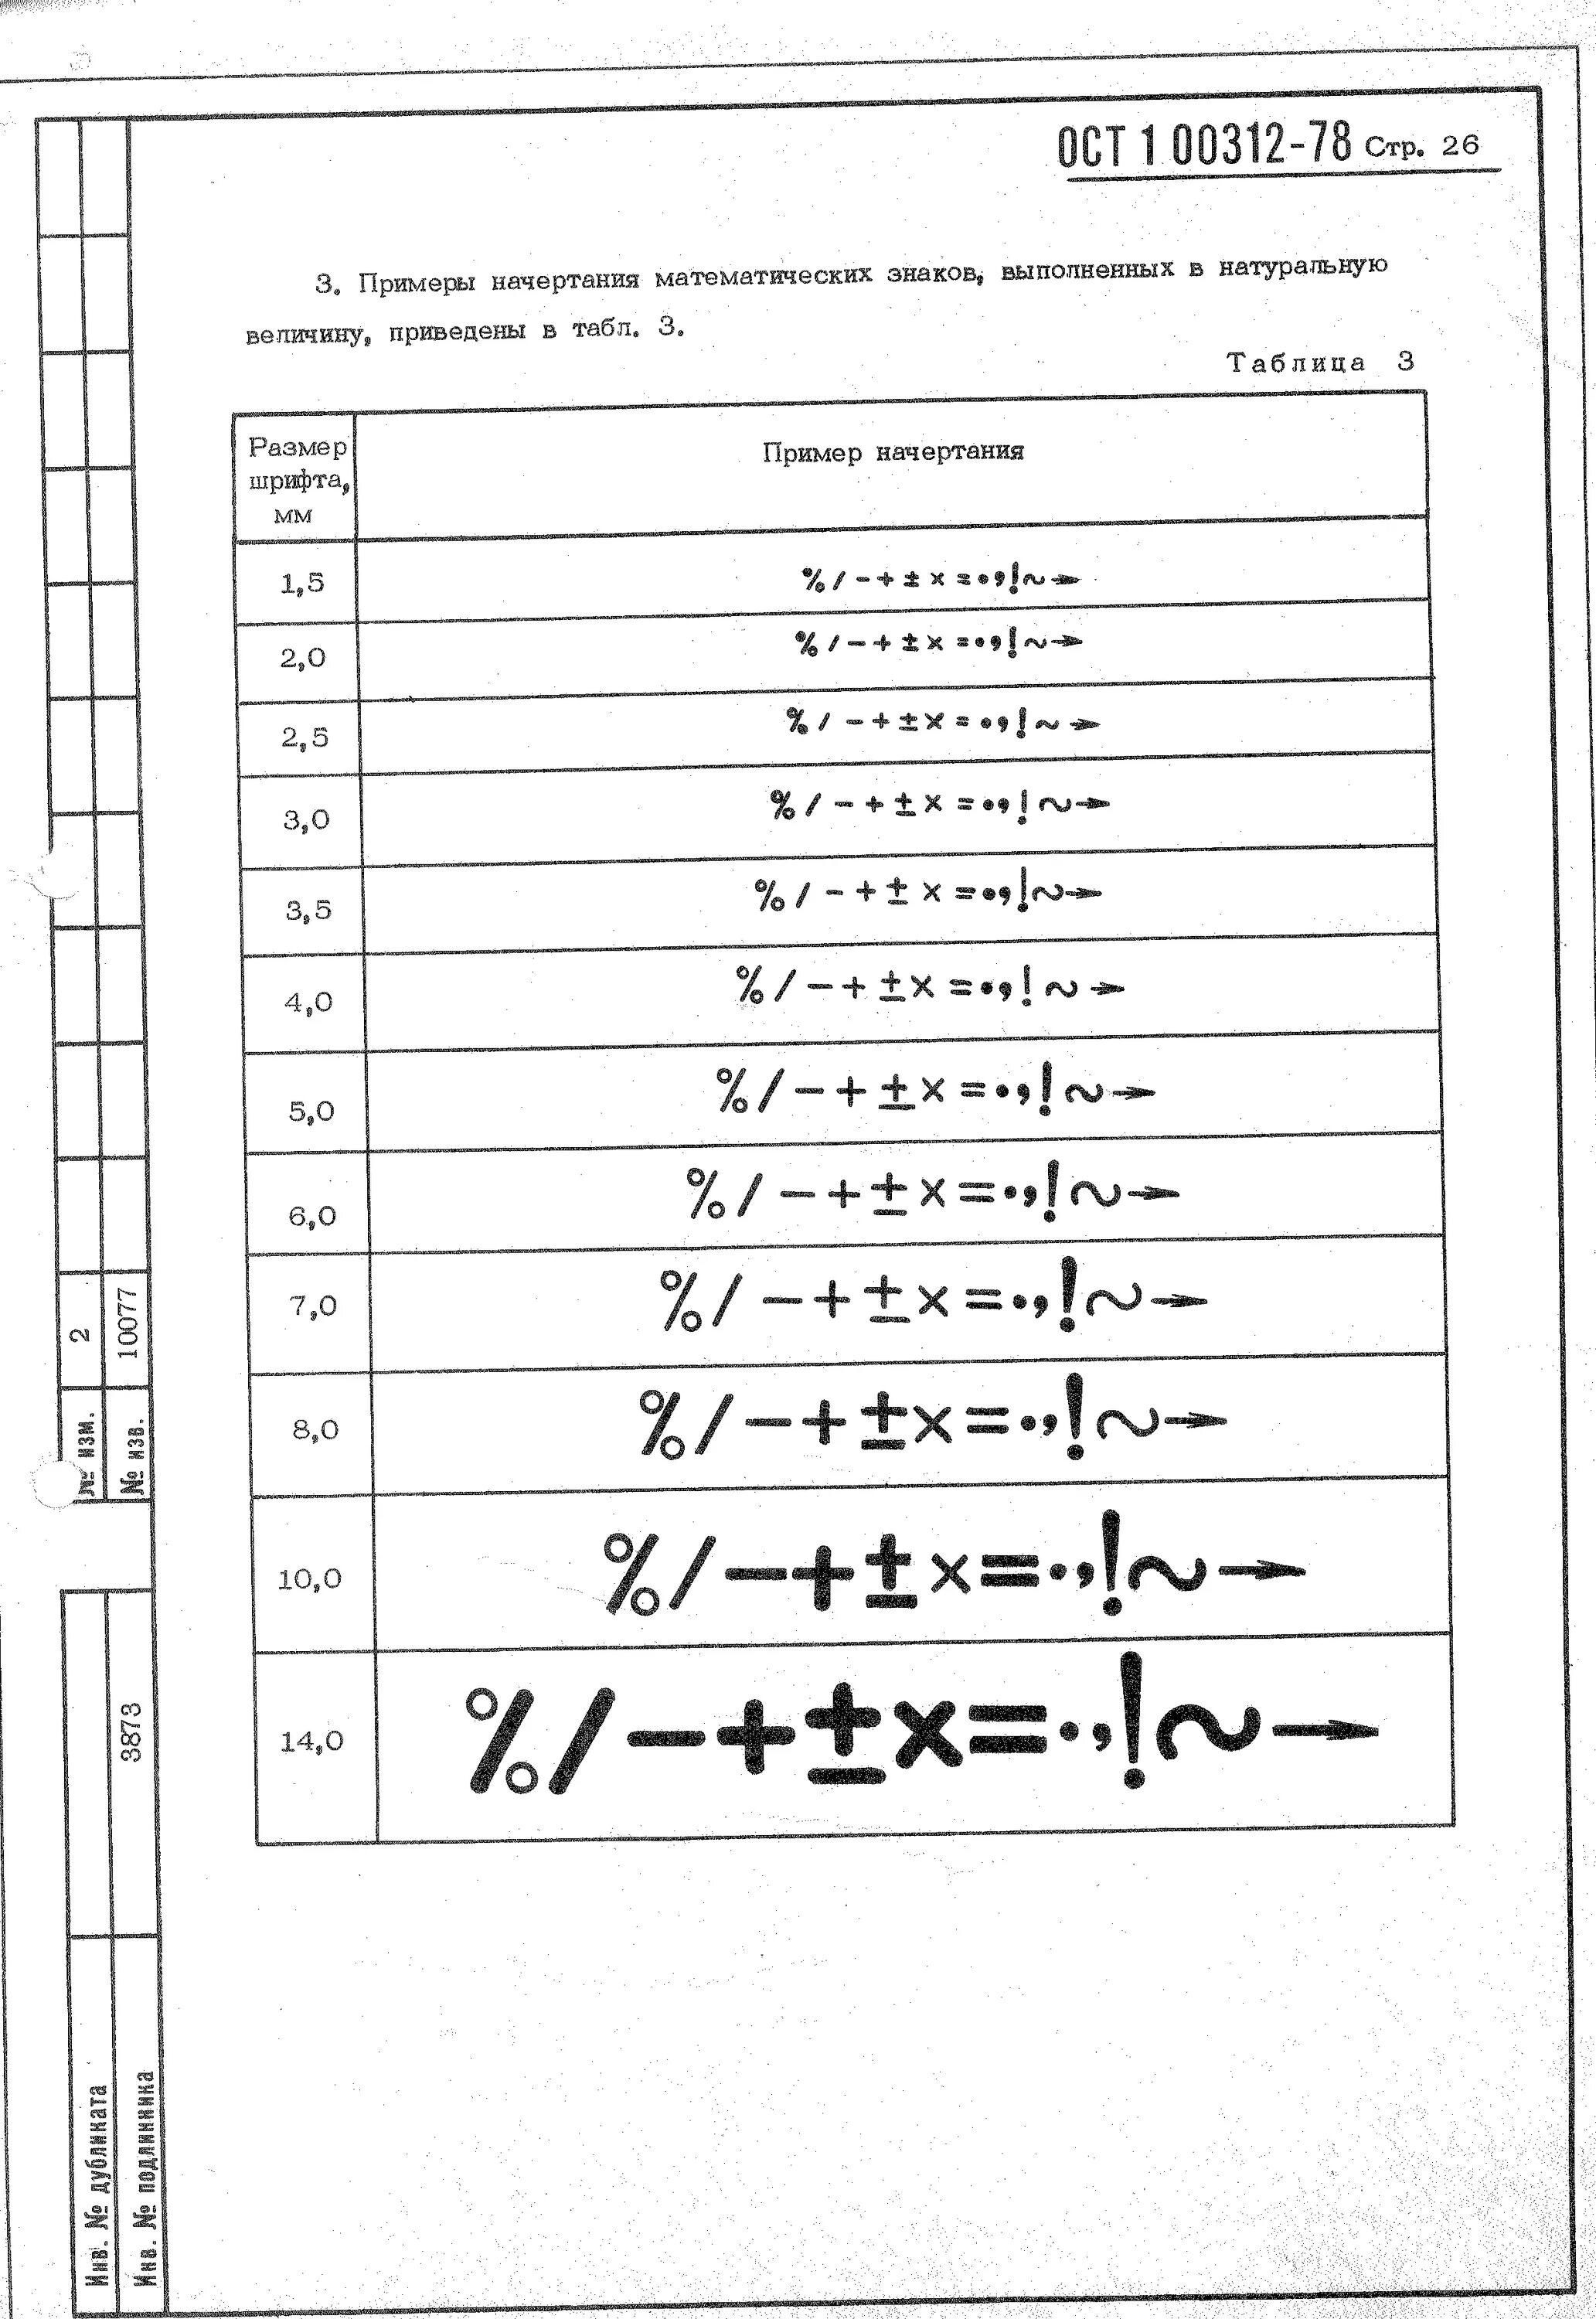 ОСТ 1 00312-78 Стр. 26
3. Примеры начертания математических знаков, выполненных в натуральную
величину, приведены в табл. 3.
Таблица 3
Размер
шрифта,
мм
Пример начертания
1,5
% / - + ± × = • , ! ~ →
2,0
% / - + ± × = • , ! ~ →
2,5
% / - + ± × = • , ! ~ →
3,0
% / - + ± × = • , ! ~ →
3,5
% / - + ± × = • , ! ~ →
4,0
% / - + ± × = • , ! ~ →
5,0
% / - + ± × = • , ! ~ →
6,0
% / - + ± × = • , ! ~ →
7,0
% / - + ± × = • , ! ~ →
8,0
% / - + ± × = • , ! ~ →
10,0
% / - + ± × = • , ! ~ →
14,0
% / - + ± × = • , ! ~ →
№ изм.
2
№ изв.
10077
Инв. № дубликата
Инв. № подлинника
3873